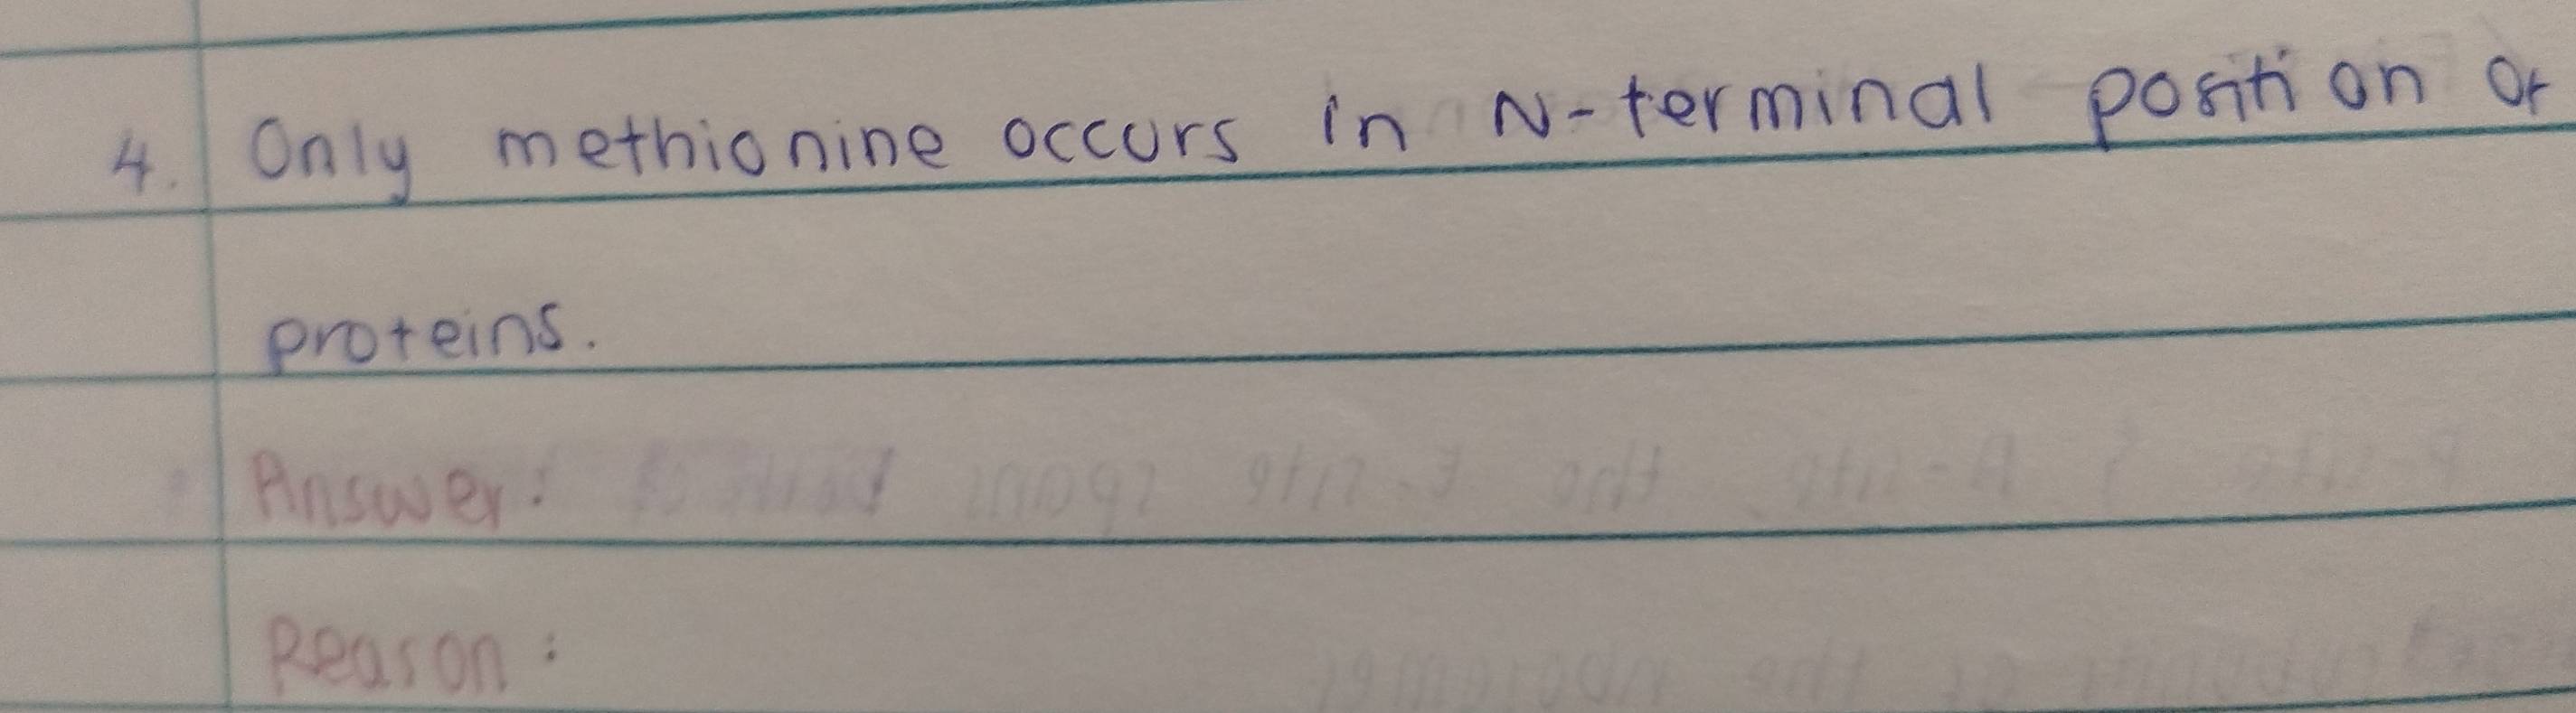 4. Only methionine occurs in N-terminal position of
proteins.
Answer:
Reason: